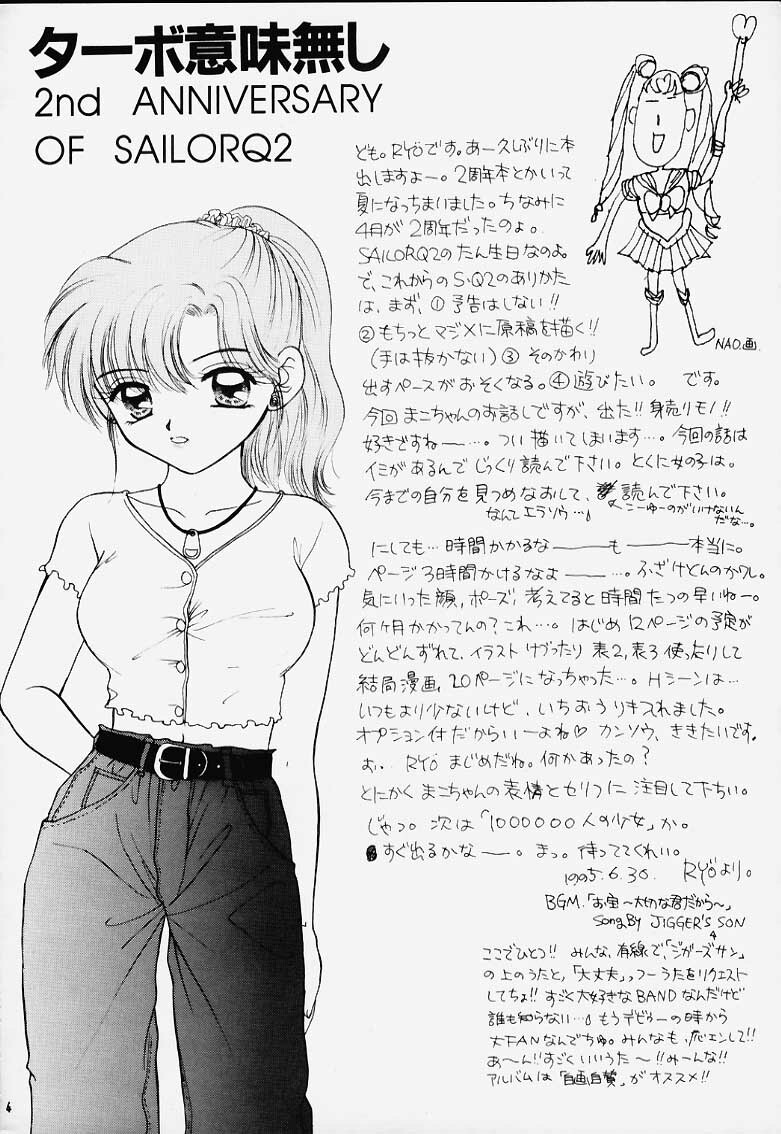 ターボ意味無し
2nd ANNIVERSARY
OF SAILORQ2
ども。RYÖです。あー久しぶりに本
出しますよー。2周年本とかいって
夏になっちまいました。ちなみに
4月が2周年だったのよ。
SAILORQ2のたん生日なのよ。
で、これからのS・Q2のありかた
は、まず、①予告はしない!!
②もちっとマジメに原稿を描く!!
(手は抜かない)③そのかわり
出すペースがおそくなる。④遊びたい。です。
今回まこちゃんのお話しですが、出た!!身売りモノ!!
好きですねー…。つい描いてしまいます…。今回の話は
イミがあるんでじっくり読んで下さい。とくに女の子は。
今までの自分を見つめなおして、読んで下さい。
なんてエラソウ…♪
こーゆーのがいけないん
だな…。
にしても…時間かかるなーーも――本当に。
ページ3時間かけるなよー…。ふざけとんのかワレ。
気にいった顔、ポーズ、考えてると時間たつの早いねー。
何ヶ月かかってんの?これ…。はじめ12ページの予定が
どんどんずれて、イラストけづったり表2,表3使ったりして
結局漫画、20ページになっちゃった…。Hシーンは…
いつもより少ないけど、いちおうリキ入れました。
オプション付だからいーよね♡カンソウ、ききたいです。
お.. RYÖまじめだね。何かあったの?
とにかくまこちゃんの表情とセリフに注目して下ちい。
じゃっ。次は「1000000人の少女」か。
すぐ出るかなー。まっ。待っててくれい。
1995.6.30. RYÖより。
BGM.「お宝～大切な君だから～」
Song By JIGGER'S SON
ここでひとつ!!みんな、有線で、「ジガーズサン」
の上のうたと、「大丈夫」っつーうたをリクエスト
してちょ!!すごく大好きなBANDなんだけど
誰も知らない…♪もうデビューの時から
大FANなんでちゅ。みんなも、応エンして!!
あ～ん!!すごくいいうた～!!みーんな!!
アルバムは「自画自賛」がオススメ!!
NAO.画.
4